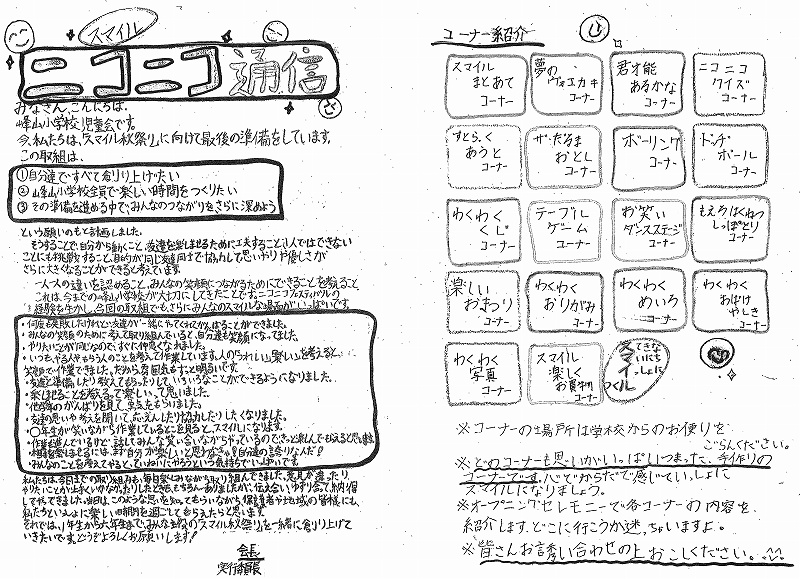 スマイル
ニコニコ通信
みなさん、こんにちは。
峰山小学校児童会です。
今、私たちは、「スマイル秋祭り」に向けて最後の準備をしています。
この取組は、
①自分達ですべて創り上げたい
②峰山小学校全員で楽しい時間をつくりたい
③その準備を進める中で、みんなのつながりをさらに深めよう
という願いのもと計画しました。
そうすることで、自分から動くこと、友達を楽しませるために工夫すること、1人ではできない
ことにも挑戦すること、目的が同じ友達同士で協力して思いやりや優しさが
さらに大きくなることができると考えています。
一人一人の違いを認めること、みんなの笑顔につながるためにできることを考えること
これは、今までの峰山小学校が大切にしてきたことです。ニコニコフェスティバルの
経験を生かし、今回の取組でも、さらにみんなのスマイルな場面がいっぱいです。
・何度も失敗したけれど、友達が一緒にやってくれてがんばることができました。
・みんなの笑顔のために考えて取り組んでいると、自分達も笑顔になってました。
・やりたいことが同じなので、すぐに仲良くなれました。
・いつも、やる人やもらう人のことを考えて作業しています。人の「うれしい」「楽しい」を考えると、
笑顔で作業できました。だから雰囲気もずっと明るいです。
・友達と準備したり教えてもらったりして、いろいろなことができるようになりました。
・楽しませることを考えるって楽しい、って思いました。
・他学年のがんばりを見て、
・友達の思いや考えを聞いて、応えんしたり協力したりしたくなりました。
・〇年生が笑いながら作業しているところを見ると、スマイルになります。
・作業を進んでいるけど、試してみんな笑い合いながらやっているので、きっと喜んでもらえると思います。
・みんなのことを考えてやると、ていねいにやろうという気持ちでいっぱいです。
私たちは、今日までの取り組みも、毎日楽しみながら取り組んできました。意見が違ったり、
やりたいことが上手くいかなかったりしたときも、もちろんありましたが、伝え合い、ゆずり合って、納得
してやってきました。当日は、このような思いも知ってもらいながら、保護者や地域の皆様にも、
私たちといっしょに楽しい時間を過ごしてもらえたらと思います。
それでは、1年生から六年生まで、みんな主役の「スマイル秋祭り」を一緒に創り上げて
いきたいです。どうぞよろしくお願いします！
会長
実行委員長
コーナー紹介
スマイル
まとあて
コーナー
夢の
コーナー
君才能
あるかな
コーナー
ニコニコ
クイズ
コーナー
すとらっく
あうと
コーナー
ザ・だるま
おとし
コーナー
ボーリング
コーナー
ドッチ
ボール
コーナー
わくわく
くじ
コーナー
テーブル
ゲーム
コーナー
お笑い
ダンスステージ
コーナー
もえろはくねつ
しっぽとり
コーナー
楽しい
おまつり
コーナー
わくわく
おりがみ
コーナー
わくわく
めいろ
コーナー
わくわく
おばけ
やしき
コーナー
わくわく
写真
コーナー
スマイル
楽しく
お買物
コーナー
スマイル
※コーナーの場所は学校からのお便りを
ごらんください。
※どのコーナーも思いがいっぱいつまった、手作りの
コーナーです。心とからだで感じていっしょに
スマイルになりましょう。
※オープニングセレモニーで各コーナーの内容を
紹介します。どこに行こうか迷っちゃいますよ。
※皆さんお誘い合わせの上おこしください。